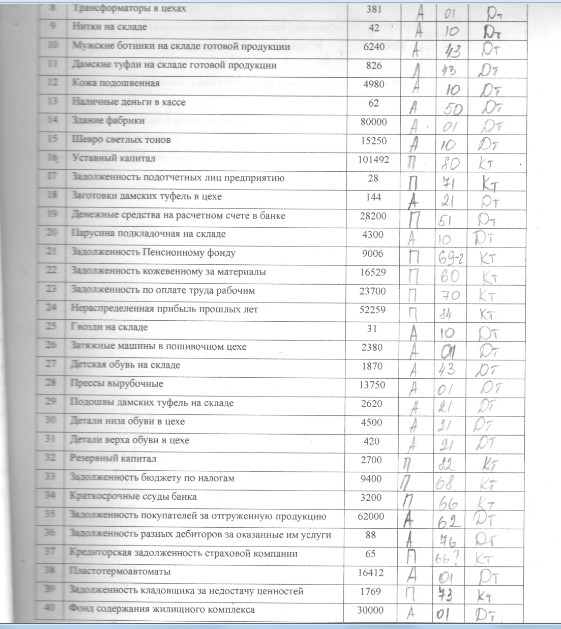 8 Трансформаторы в цехах 381 А 01 Дт
9 Нитки на складе 42 А 10 Дт
10 Мужские ботинки на складе готовой продукции 6240 А 43 Дт
11 Дамские туфли на складе готовой продукции 826 А 43 Дт
12 Кожа подошвенная 4980 А 10 Дт
13 Наличные деньги в кассе 62 А 50 Дт
14 Здание фабрики 80000 А 01 Дт
15 Шевро светлых тонов 15250 А 10 Дт
16 Уставный капитал 101492 П 80 Кт
17 Задолженность подотчетных лиц предприятию 28 П 71 Кт
18 Заготовки дамских туфель в цехе 144 А 21 Дт
19 Денежные средства на расчетном счете в банке 28200 П 51 Дт
20 Парусина подкладочная на складе 4300 А 10 Дт
21 Задолженность Пенсионному фонду 9006 П 69-2 Кт
22 Задолженность кожевенному за материалы 16529 П 60 Кт
23 Задолженность по оплате труда рабочим 23700 П 70 Кт
24 Нераспределенная прибыль прошлых лет 52259 П 84 Кт
25 Гвозди на складе 31 А 10 Дт
26 Затяжные машины в пошивочном цехе 2380 А 01 Дт
27 Детская обувь на складе 1870 А 43 Дт
28 Прессы вырубочные 13750 А 01 Дт
29 Подошвы дамских туфель на складе 2620 А 21 Дт
30 Детали низа обуви в цехе 4500 А 21 Дт
31 Детали верха обуви в цехе 420 А 21 Дт
32 Резервный капитал 2700 П 82 Кт
33 Задолженность бюджету по налогам 9400 П 68 Кт
34 Краткосрочные ссуды банка 3200 П 66 Кт
35 Задолженность покупателей за отгруженную продукцию 62000 А 62 Дт
36 Задолженность разных дебиторов за оказанные им услуги 88 А 76 Дт
37 Кредиторская задолженность страховой компании 65 П 66? Кт
38 Пластотермоавтоматы 16412 А 01 Дт
39 Задолженность кладовщика за недостачу ценностей 1769 П 73 Кт
40 Фонд содержания жилищного комплекса 30000 А 01 Дт